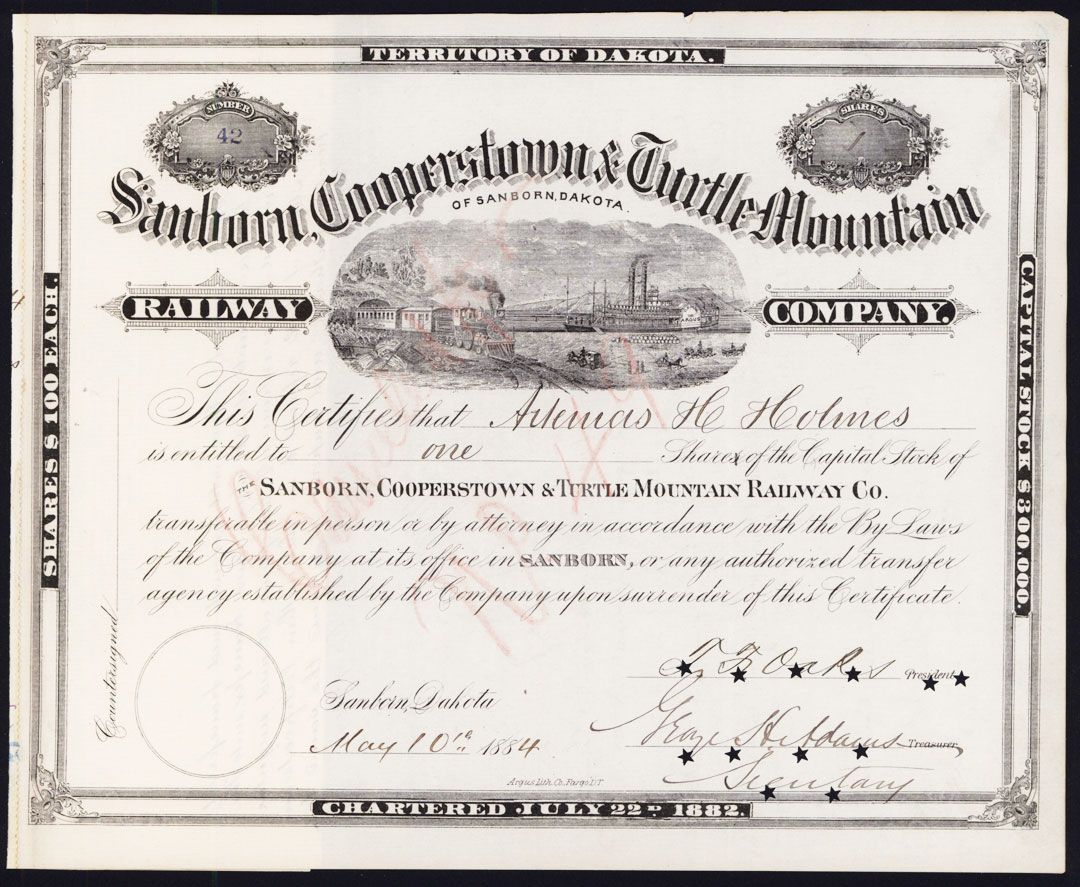 TERRITORY OF DAKOTA.
NUMBER
42
SHARES
1
Sanborn, Cooperstown & Turtle Mountain
OF SANBORN, DAKOTA.
RAILWAY COMPANY.
ARGUS
SHARES $100 EACH.
CAPITAL STOCK $300,000.
This Certifies that Artemas H Holmes
is entitled to one Shares of the Capital Stock of
THE SANBORN, COOPERSTOWN & TURTLE MOUNTAIN RAILWAY CO.
transferable in person or by attorney in accordance with the By Laws
of the Company at its office in SANBORN, or any authorized transfer
agency established by the Company upon surrender of this Certificate.
Countersigned
T. F. Oakes President
Sanborn, Dakota
May 10th 1884
George H Adams Treasurer
Secretary
Argus Lith. Co. Fargo D.T.
CHARTERED JULY 22D. 1882.